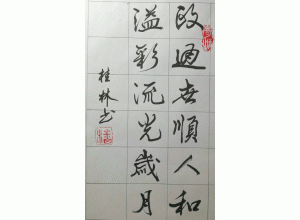 政通世順人和
溢彩流光歲月
桂林书